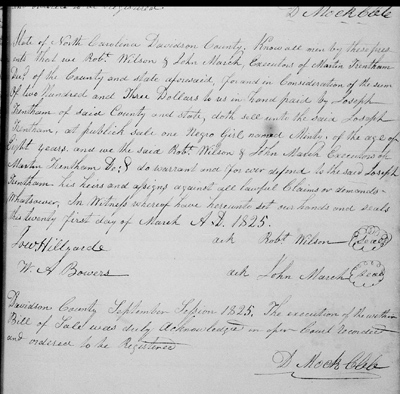 and ordered to be Registered
D Mock Clk
State of North Carolina Davidson County. Know all men by these pres
ents that we Robt. Wilson & John March, Executors of Martin
of the County and state aforesaid, for and in Consideration of the sum
of two Hundred and Three Dollars to us in hand paid by Joseph
of said County and state, doth sell unto the said Joseph
at publick sale one Negro Girl named of the age of
Eight years. and we the said Robt. Wilson & John March Executors of
Martin do warrant and forever defend to the said Joseph
his heirs and assigns against all lawful Claims or demands
Whatsoever, In Witness whereof have hereunto set our hands and seals
this twenty first day of March A.D. 1825.
Robt Wilson (Seal)
W. A Bowers
John March (Seal)
Davidson County September Session 1825. The execution of the within
Bill of Sale was duly Acknowledged in open Court Recorded
and ordered to be Registered
D Mock Clk